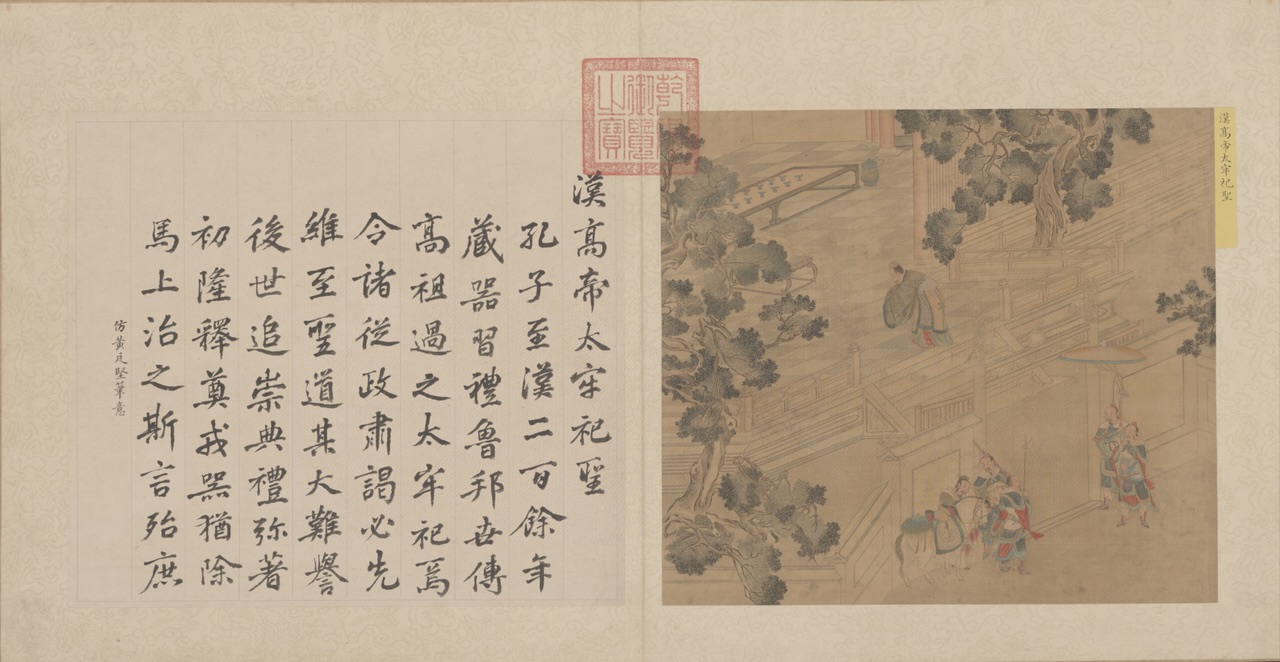 漢髙帝太牢祀聖
乾隆
御覽
之寶
漢髙帝太牢祀聖
孔子至漢二百餘年
藏器習禮魯邦世傳
髙祖過之太牢祀焉
令諸從政肅謁必先
維至聖道其大難譽
後世追崇典禮弥著
初隆釋奠戎器猶除
馬上治之斯言殆庶
仿黃廷堅筆意